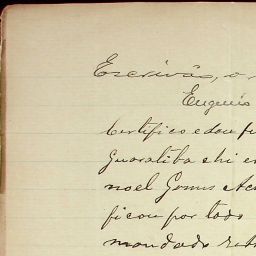 Escrivão, o
Eugenio
Certifico e dou fé
Guaratiba ahi
noel Gomes
ficou por todo
mandado